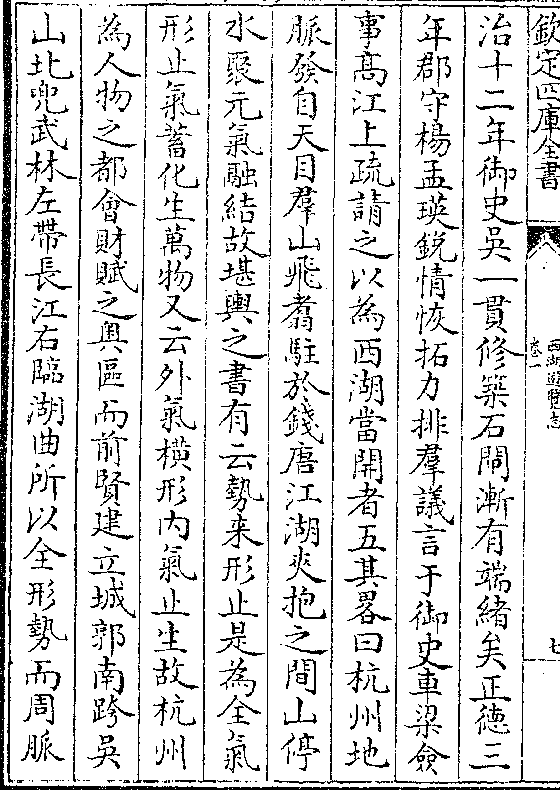 欽定四庫全書
西湖遊覽志
卷一
七
治十二年御史吳一貫修築石閘漸有端緒矣正德三
年郡守楊孟瑛銳情恢拓力排羣議言于御史車梁僉
事高江上疏請之以為西湖當開者五其畧曰杭州地
脈發自天目羣山飛翥駐於錢唐江湖夾抱之間山停
水聚元氣融結故堪輿之書有云勢来形止是為全氣
形止氣蓄化生萬物又云外氣橫形內氣止生故杭州
為人物之都會財賦之奧區而前賢建立城郭南跨吳
山北兜武林左帶長江右臨湖曲所以全形勢而周脈